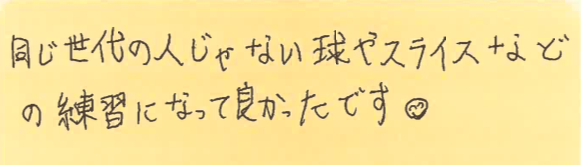 同じ世代の人じゃない球やスライスなど
の練習になって良かったです☺